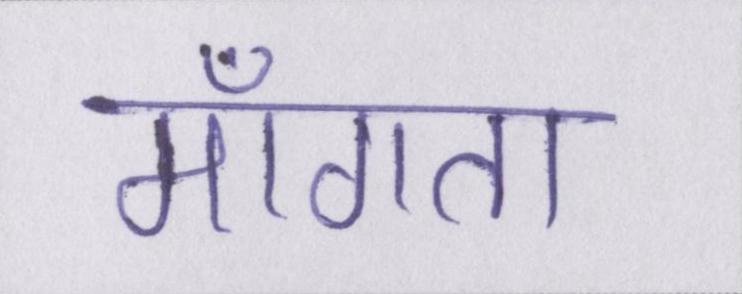 माँगता